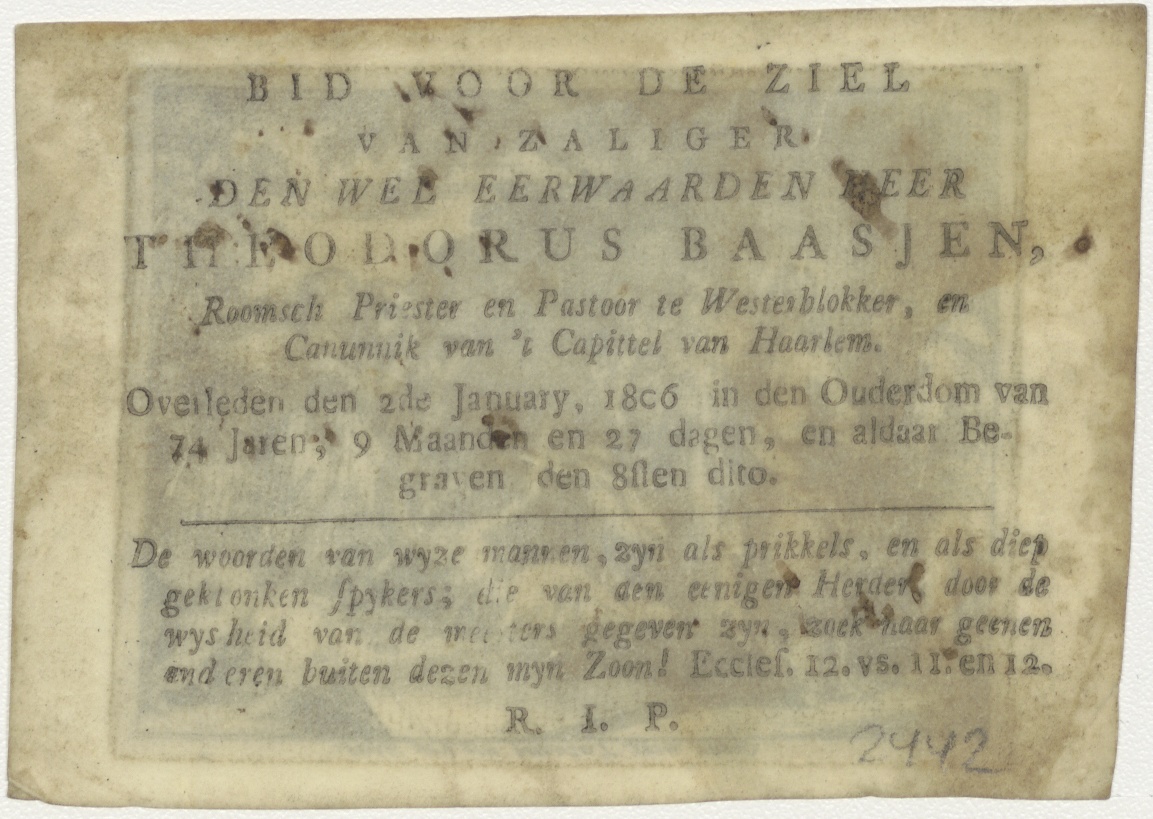 BID VOOR DE ZIEL
VAN ZALIGER
DEN WEL EERWAARDEN HEER
THEODORUS BAASJEN,
Roomsch Priester en Pastoor te Westerblokker, en
Canunnik van 't Capittel van Haarlem.
Overleden den 2de January, 1806 in den Ouderdom van
74 Jaren, 9 Maanden en 27 dagen, en aldaar Be-
graven den 8ſten dito.
De woorden van wyze mannen, zyn als prikkels, en als diep
geklonken ſpykers; die van den eenigen Herder, door de
wysheid van de meesters gegeven zyn, zoek naar geenen
anderen buiten dezen myn Zoon! Eccleſ. 12. vs. 11. en 12.
R. I. P.
2442